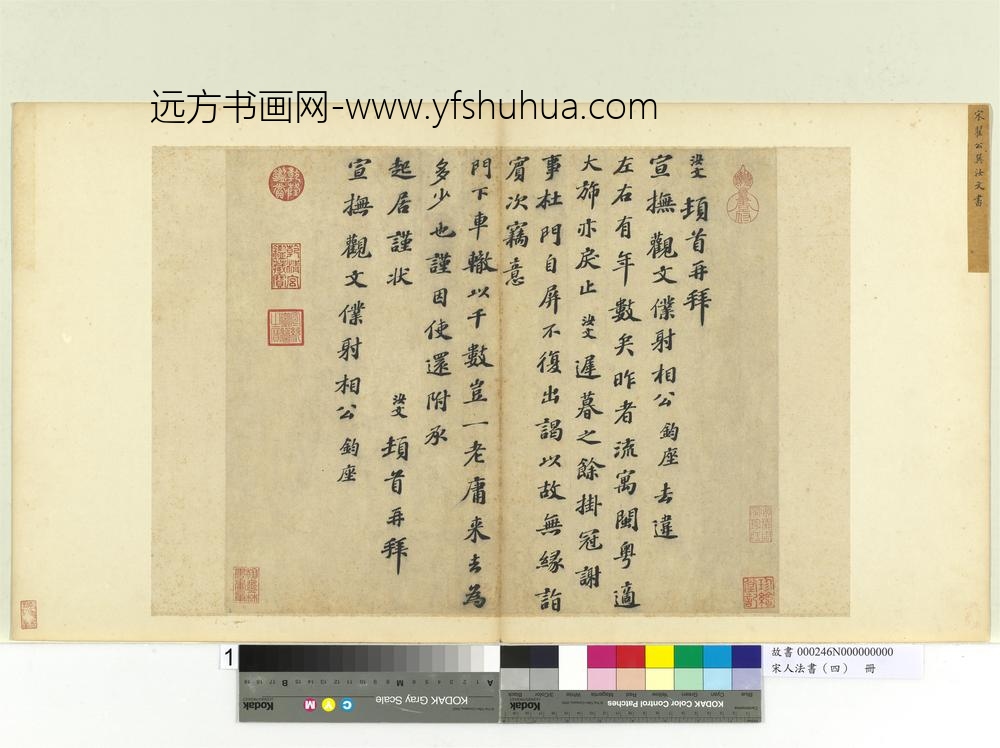 远方书画网-www.yfshuhua.com
宋翟公巽汝文書
汝文頓首再拜
宣撫觀文僕射相公鈞座去違
左右有年數矣昨者流寓閩粤適
大斾亦戾止汝文遲暮之餘掛冠謝
事杜門自屏不復出謁以故無緣詣
賓次竊意
門下車轍以千數豈一老庸来去為
多少也謹因使還附承
起居謹状
汝文頓首再拜
宣撫觀文僕射相公鈞座
1
故書 000246N000000000
宋人法書（四） 冊
KODAK Gray Scale
KODAK Color Control Patches
Kodak
Kodak
C
Y
M
A
M
B
Blue
Cyan
Green
Yellow
Red
Magenta
White
3/Color
Black